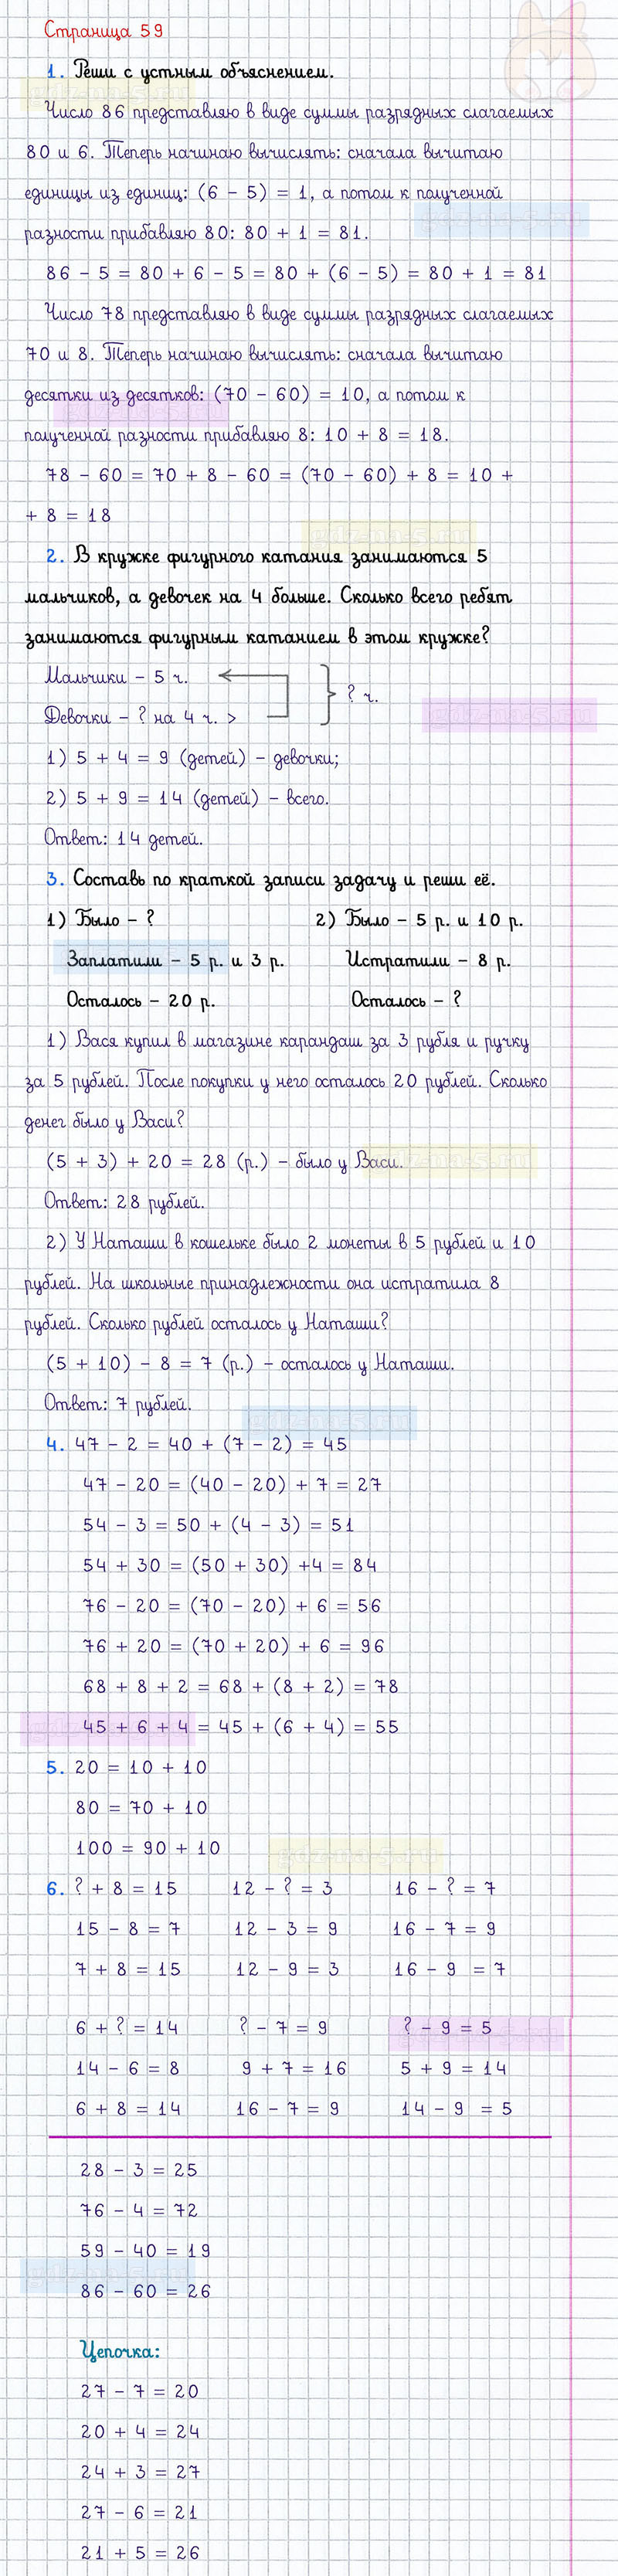 Страница 59
1. Реши с устным объяснением.
Число 86 представляю в виде суммы разрядных слагаемых
80 и 6. Теперь начинаю вычислять: сначала вычитаю
единицы из единиц: (6 - 5) = 1, а потом к полученной
разности прибавляю 80: 80 + 1 = 81.
86 - 5 = 80 + 6 - 5 = 80 + (6 - 5) = 80 + 1 = 81
Число 78 представляю в виде суммы разрядных слагаемых
70 и 8. Теперь начинаю вычислять: сначала вычитаю
десятки из десятков: (70 - 60) = 10, а потом к
полученной разности прибавляю 8: 10 + 8 = 18.
78 - 60 = 70 + 8 - 60 = (70 - 60) + 8 = 10 +
+ 8 = 18
2. В кружке фигурного катания занимаются 5
мальчиков, а девочек на 4 больше. Сколько всего ребят
занимаются фигурным катанием в этом кружке?
Мальчики - 5 ч.
? ч.
Девочки - ? на 4 ч. >
1) 5 + 4 = 9 (детей) - девочки;
2) 5 + 9 = 14 (детей) - всего.
Ответ: 14 детей.
3. Составь по краткой записи задачу и реши её.
1) Было - ? 2) Было - 5 р. и 10 р.
Заплатили - 5 р. и 3 р. Истратили - 8 р.
Осталось - 20 р. Осталось - ?
1) Вася купил в магазине карандаш за 3 рубля и ручку
за 5 рублей. После покупки у него осталось 20 рублей. Сколько
денег было у Васи?
(5 + 3) + 20 = 28 (р.) - было у Васи.
Ответ: 28 рублей.
2) У Наташи в кошельке было 2 монеты в 5 рублей и 10
рублей. На школьные принадлежности она истратила 8
рублей. Сколько рублей осталось у Наташи?
(5 + 10) - 8 = 7 (р.) - осталось у Наташи.
Ответ: 7 рублей.
4. 47 - 2 = 40 + (7 - 2) = 45
47 - 20 = (40 - 20) + 7 = 27
54 - 3 = 50 + (4 - 3) = 51
54 + 30 = (50 + 30) +4 = 84
76 - 20 = (70 - 20) + 6 = 56
76 + 20 = (70 + 20) + 6 = 96
68 + 8 + 2 = 68 + (8 + 2) = 78
45 + 6 + 4 = 45 + (6 + 4) = 55
5. 20 = 10 + 10
80 = 70 + 10
100 = 90 + 10
6. ? + 8 = 15 12 - ? = 3 16 - ? = 7
15 - 8 = 7 12 - 3 = 9 16 - 7 = 9
7 + 8 = 15 12 - 9 = 3 16 - 9 = 7
6 + ? = 14 ? - 7 = 9 ? - 9 = 5
14 - 6 = 8 9 + 7 = 16 5 + 9 = 14
6 + 8 = 14 16 - 7 = 9 14 - 9 = 5
28 - 3 = 25
76 - 4 = 72
59 - 40 = 19
86 - 60 = 26
Цепочка:
27 - 7 = 20
20 + 4 = 24
24 + 3 = 27
27 - 6 = 21
21 + 5 = 26